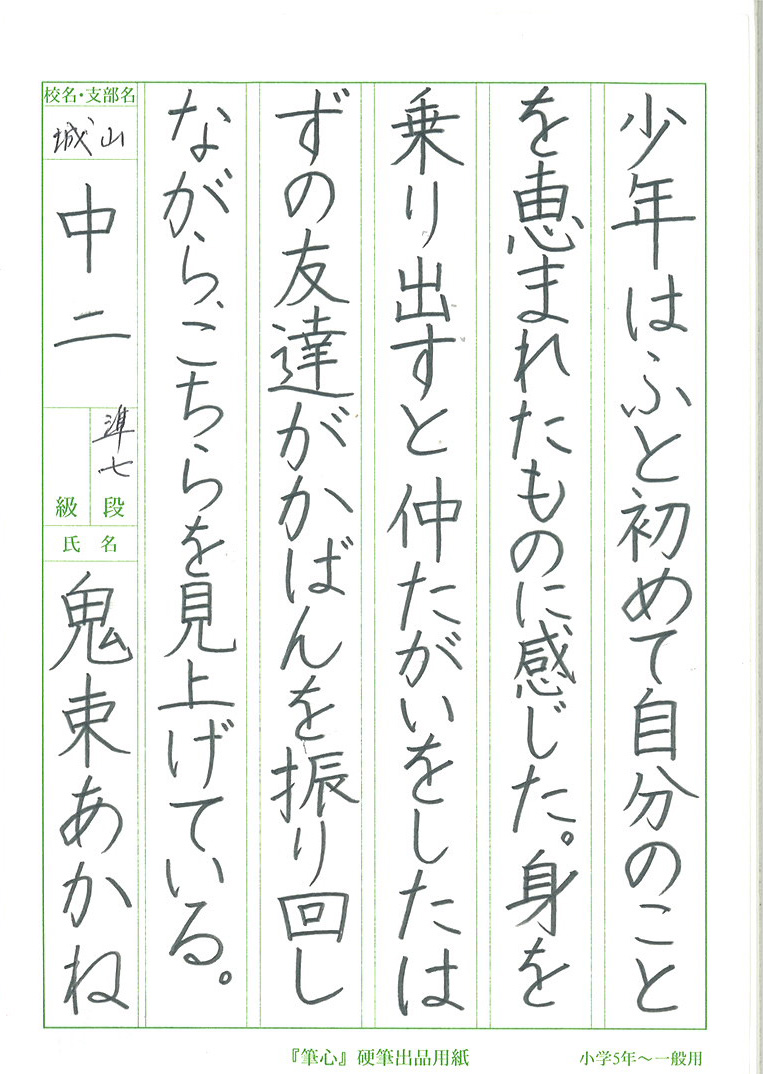 少年はふと初めて自分のこと
を恵まれたものに感じた。身を
乗り出すと仲たがいをしたは
ずの友達がかばんを振り回し
ながら、こちらを見上げている。
校名・支部名
城山
中二
準七
段
級
氏名
鬼束あかね
『筆心』硬筆出品用紙
小学5年〜一般用